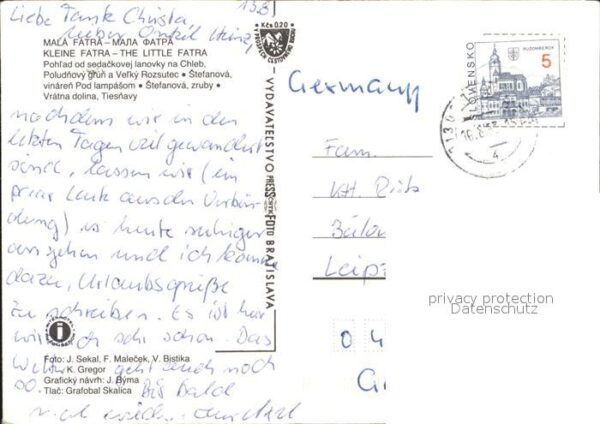 Liebe Tante Christa,
lieber Onkel Heinz,
13.8.
Kčs 0,20
V PROSPECH CESTOVNÉHO RUCHU
MALÁ FATRA – МАЛА ФАТРА
KLEINE FATRA – THE LITTLE FATRA
Pohľad od sedačkovej lanovky na Chleb,
Poludňový grúň a Veľký Rozsutec • Štefanová,
vináreň Pod lampášom • Štefanová, zruby •
Vrátna dolina, Tiesňavy
nachdem wir in den
letzten Tagen viel gewandert
sind, lassen wir (ein
paar Leute aus der
) es heute ruhiger
angehen und ich komme
dazu, Urlaubsgrüße
zu schreiben. Es ist hier
wirklich sehr schön. Das
geht auch noch
so. Bis bald
Foto: J. Sekal, F. Maleček, V. Bistika
K. Gregor
Grafický návrh: J. Býma
Tlač: Grafobal Skalica
VYDAVATEĽSTVO PRESSFOTO BRATISLAVA
SLOVENSKO
RUŽOMBEROK
5
4
Germany
Fam.
Leipz
privacy protection
Datenschutz
0 4
G